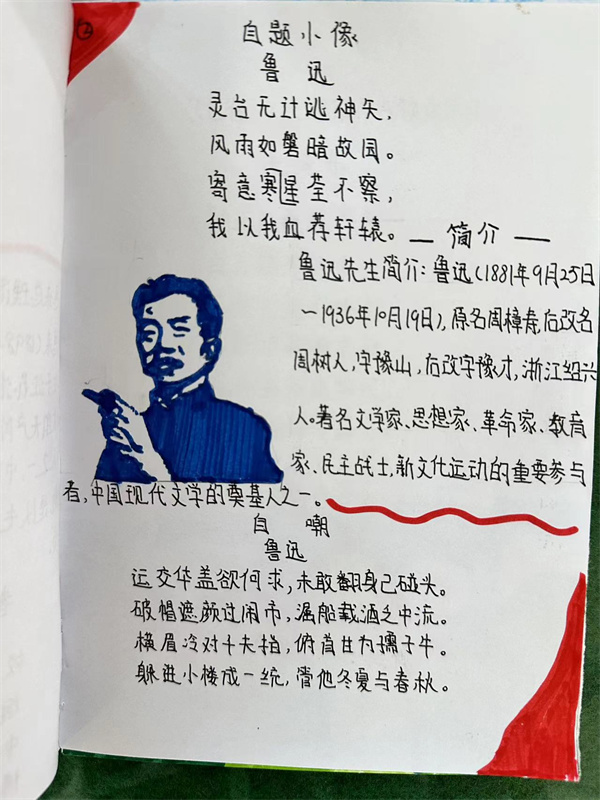 ②
自题小像
鲁迅
灵台无计逃神矢，
风雨如磐暗故园。
寄意寒星荃不察，
我以我血荐轩辕。
— 简介 —
鲁迅先生简介：鲁迅（1881年9月25日
－1936年10月19日），原名周樟寿，后改名
周树人，字豫山，后改字豫才，浙江绍兴
人。著名文学家、思想家、革命家、教育
家、民主战士，新文化运动的重要参与
者，中国现代文学的奠基人之一。
自嘲
鲁迅
运交华盖欲何求，未敢翻身已碰头。
破帽遮颜过闹市，漏船载酒乏中流。
横眉冷对千夫指，俯首甘为孺子牛。
躲进小楼成一统，管他冬夏与春秋。